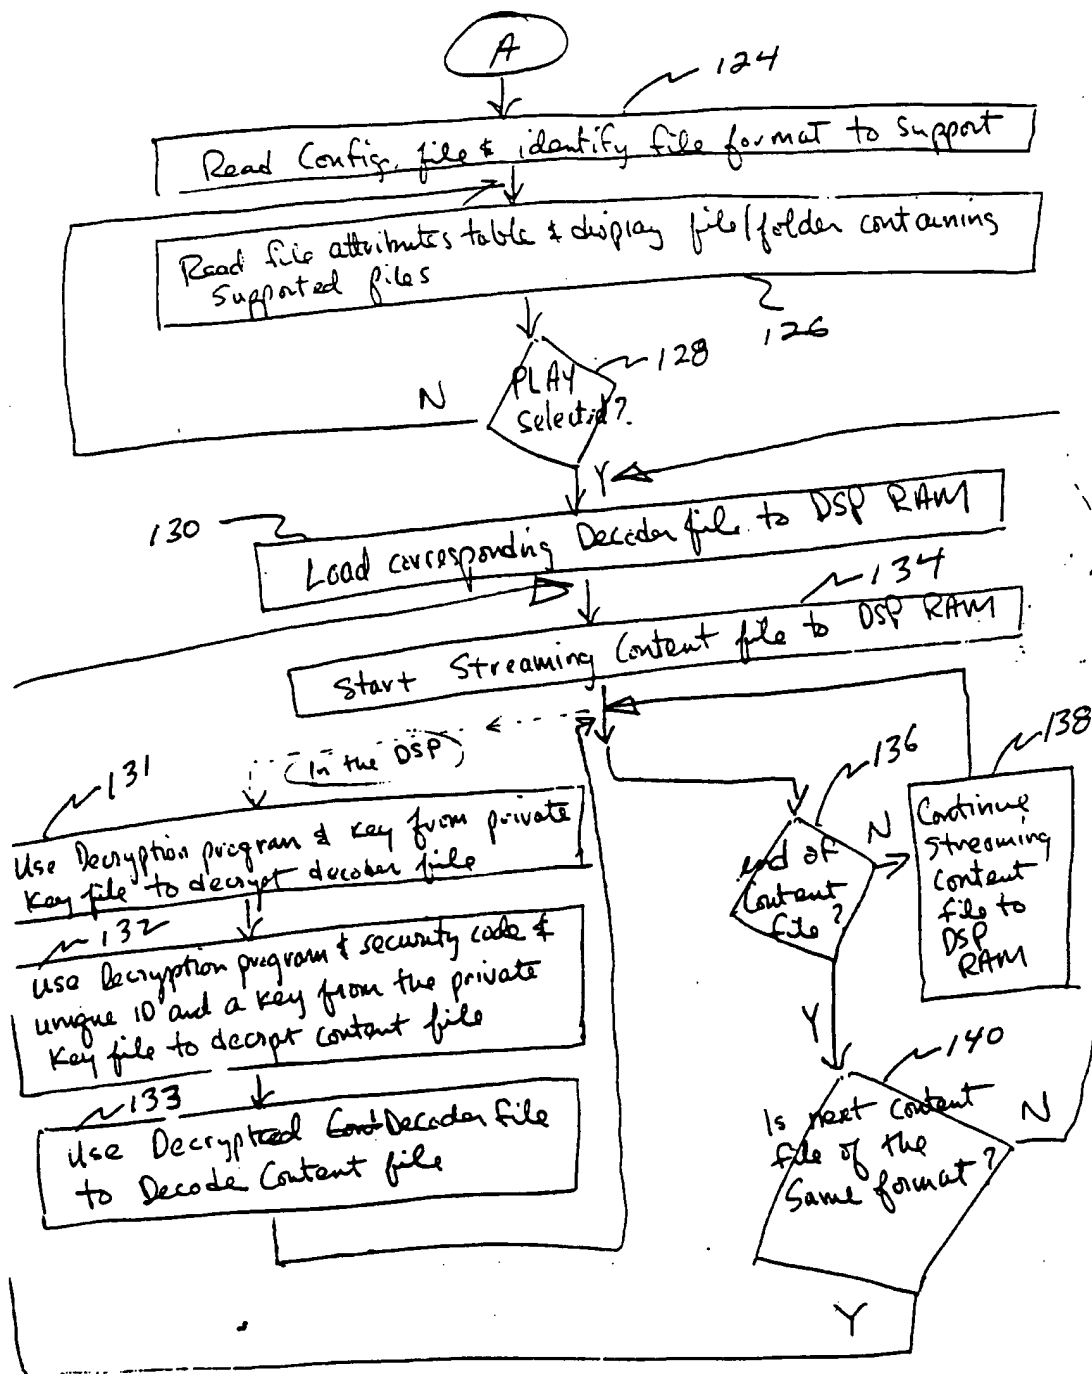 A
124
Read Config. file & identify file format to support
Read file attributes table & display file/folder containing
Supported files
126
128
PLAY
Selected?
N
Y
130
Load corresponding Decoder file to DSP RAM
134
Start Streaming Content file to DSP RAM
(In the DSP)
131
Use Decryption program & key from private
key file to decrypt decoder file
132
Use Decryption program & security code &
unique ID and a key from the private
key file to decrypt content file
133
Use Decrypted Decoder file
to Decode Content file
136
end of
Content
file?
N
138
Continue
Streaming
Content
file to
DSP
RAM
Y
140
Is next content
file of the
Same format?
N
Y